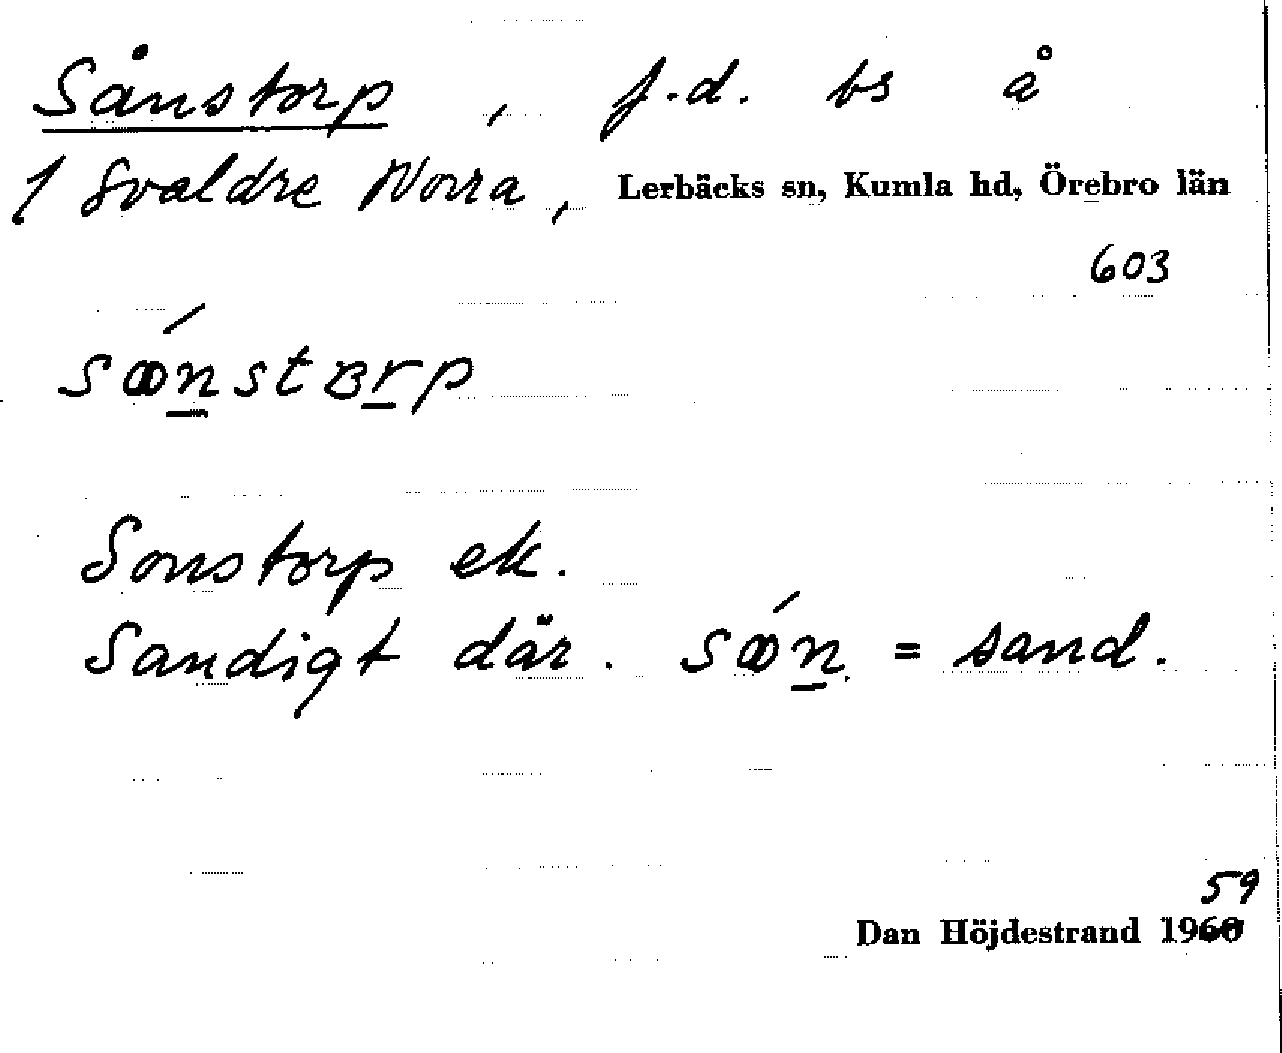 Sånstorp, f.d. bs å
1 Svaldre Norra, Lerbäcks sn, Kumla hd, Örebro län
603
Sonstorp ek.
Sandigt där. = sand.
59
Dan Höjdestrand 1960